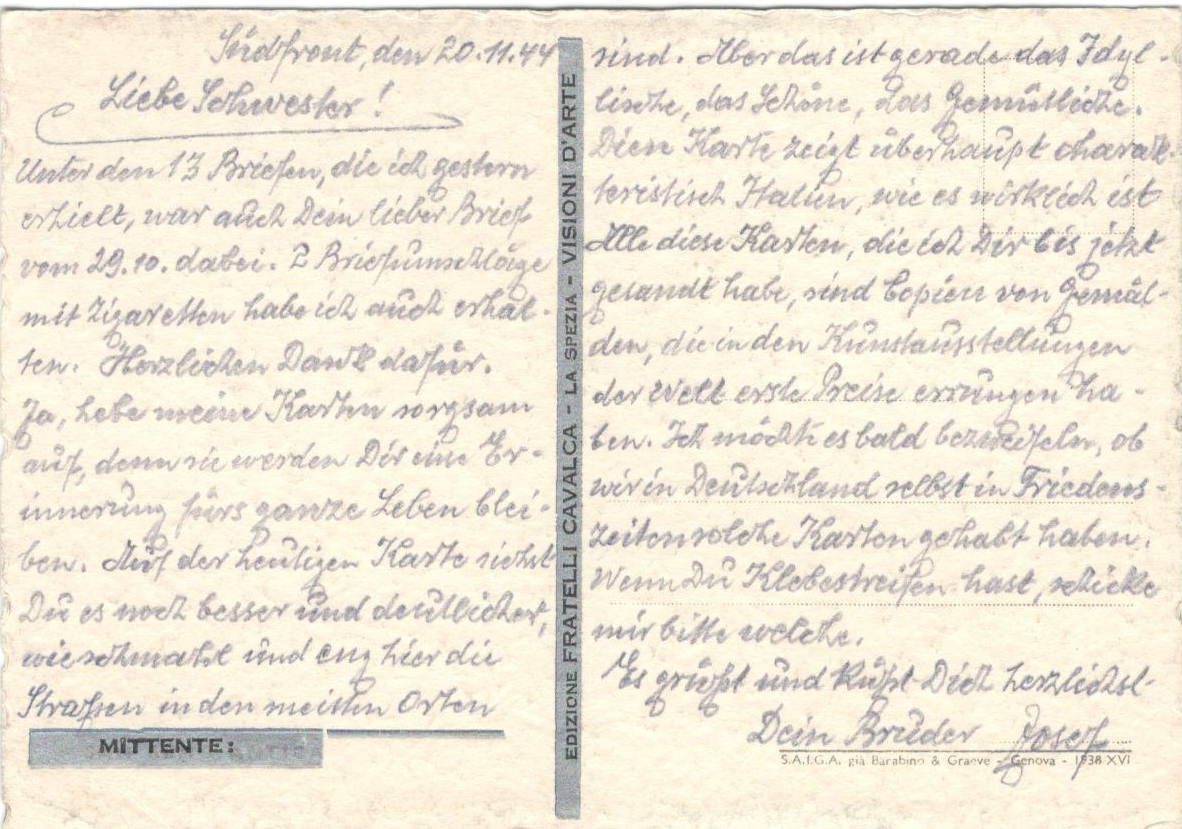 Südfront, den 20.11.44
Liebe Schwester!
Unter den 13 Briefen, die ich gestern
erhielt, war auch Dein lieber Brief
vom 29.10. dabei. 2 Briefumschläge
mit Zigaretten habe ich auch erhal-
ten. Herzlichen Dank dafür.
Ja, hebe meine Karten sorgsam
auf, denn sie werden Dir eine Er-
innerung fürs ganze Leben blei-
ben. Auf der heutigen Karte siehst
Du es noch besser und deutlicher,
wie schmahl und eng hier die
Straßen in den meisten Orten
MITTENTE:
EDIZIONE FRATELLI CAVALCA - LA SPEZIA - VISIONI D'ARTE
sind. Aber das ist gerade das Idyl-
lische, das Schöne, das Gemütliche.
Diese Karte zeigt überhaupt charak
teristisch Italien, wie es wirklich ist
Alle diese Karten, die ich Dir bis jetzt
gesandt habe, sind Copien von Gemäl-
den, die in den Kunstausstellungen
der Welt erste Preise errungen ha-
ben. Ich möchte es bald bezweifeln, ob
wir in Deutschland selbst in Friedens-
zeiten solche Karten gehabt haben.
Wenn Du Klebestreifen hast, schicke
mir bitte welche.
Es grüßt und küßt Dich herzlichst-
Dein Bruder Josef
S.A.I.G.A. già Barabino & Graeve - Genova - 1938 XVI